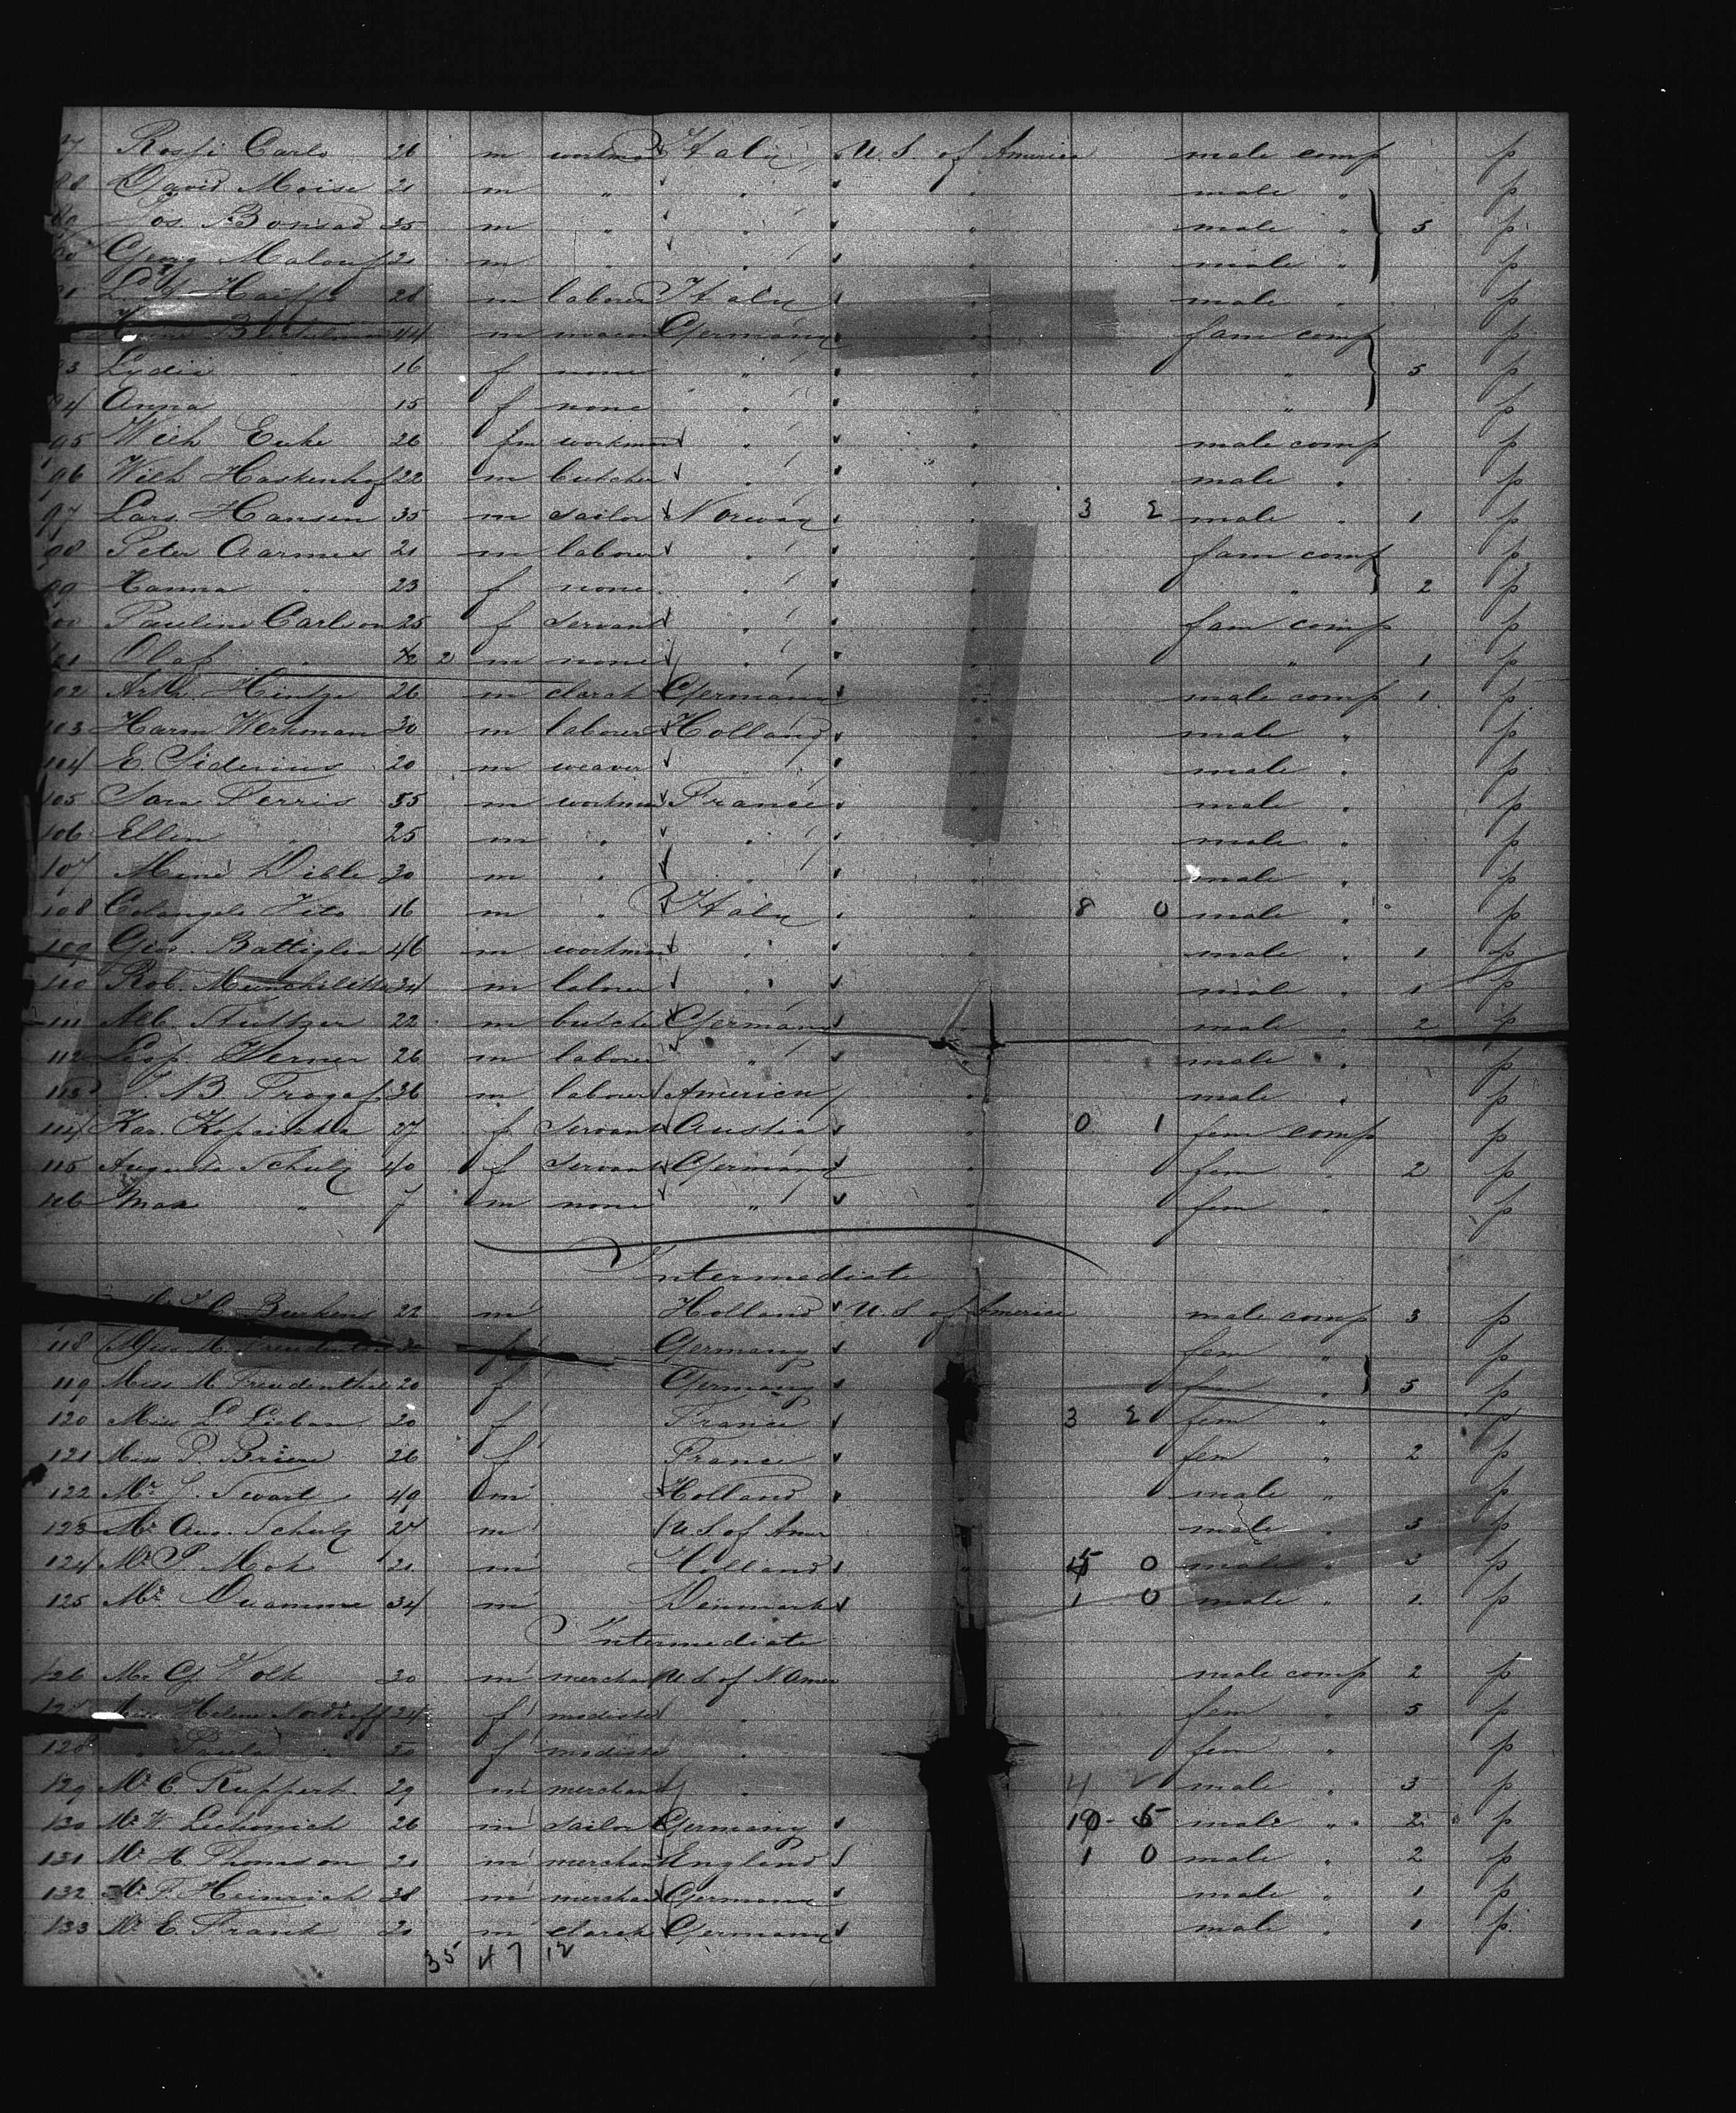 Rossi Carlo 26 m workman Italy U.S. of America male comp p
88 David Moise 21 m " " " male " p
Jos. Bonsad 35 m " " " male " 5 p
Georg Malouf 21 m " " " male " p
91 L. Haiffe 28 m laborer Italy " male " p
44 m mason Germany " fam comp p
93 Lydia " 16 f none " " " 5 p
94 Anna 15 f none " " " p
95 Wilh Euke 26 m workman " " male comp p
96 Wilh Haskenhof 22 m butcher " " male " p
97 Lars Hansen 35 m sailor Norway " 3 2 male " 1 p
98 Peter Aarnes 21 m laborer " " fam comp p
99 Hanna " 23 f none " " " 2 p
Pauline Carlson 25 f servant " " fam comp p
101 Olaf " 2 m none " " " 1 p
102 Arth. Hintze 26 m clark Germany " male comp 1 p
103 Harm Werkman 30 m laborer Holland " male " p
104 E. Siderius 20 m weaver " " male " p
105 Ferris 35 m workman France " male " p
106 Ellin " 25 m " " " male " p
107 Dible 30 m " " " male " p
108 Colangelo Vito 16 m " Italy " 8 0 male " p
109 Gio. Battiglia 46 m workman " " male " 1 p
110 Rob. 24 m laborer " " male " 1 p
111 Alb. Stultzer 22 m butcher Germany " male " 2 p
112 Leop. Werner 26 m laborer " " male " p
113 B. 36 m laborer America " male " p
114 Kar. 27 f servant Austia " 0 1 fem comp p
115 Auguste Schulz 40 f servant Germany " fem " 2 p
116 Max " 7 m none " " fem " p
Intermediate
22 m Holland U.S. of America male comp 3 p
118 Miss M. Freudenthal 30 f Germany fem " p
119 Miss M Freudenthal 20 f Germany fem " 5 p
120 Miss L Lieban 20 f France 3 2 fem " p
121 Miss P. Briere 26 f France fem " 2 p
122 Mr J. Swart 40 m Holland male " p
123 Mr Aug. Schulz 27 m U.S of Amer male " 3 p
124 Mr P. Mok 21 m Holland 0 male " 3 p
125 Mr. 34 m Denmark 1 0 male " 1 p
Intermediate
126 Mr G. Volk 30 m merchant U.S. of N. Amer male comp 2 p
Miss Helene 24 f modiste " fem " 5 p
128 " Paula " 20 f modiste " fem " p
129 Mr C. Ruppert 29 m merchant " 4 2 male " 3 p
130 Mr W. 26 m sailor Germany male " 2 p
131 Mr H. Thomson 21 m merchant England 1 0 male " 2 p
132 Mr F. Heinrich 38 m merchant Germany male " 1 p
133 Mr E. Frank 21 m clark Germany male " 1 p
35 47 12